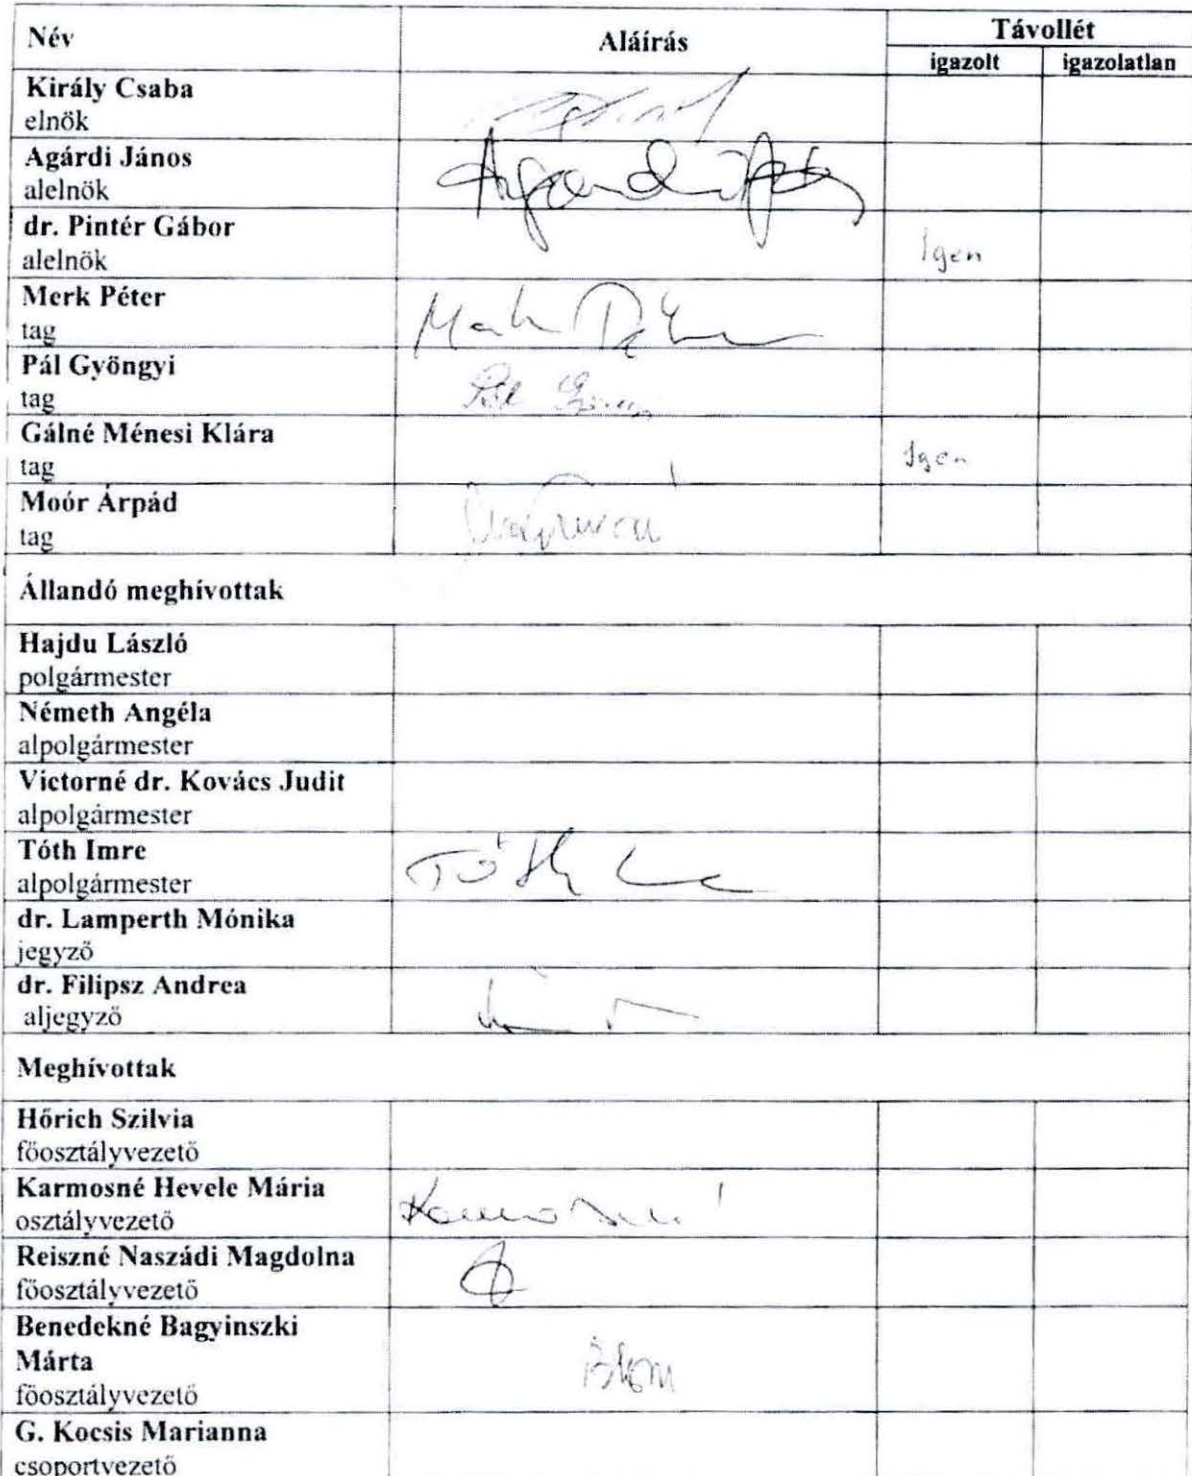 Név Aláírás Távollét
igazolt igazolatlan
Király Csaba
elnök
Agárdi János
alelnök
dr. Pintér Gábor
alelnök Igen
Merk Péter
tag
Pál Gyöngyi
tag
Gálné Ménesi Klára
tag Igen
Moór Árpád
tag
Állandó meghívottak
Hajdu László
polgármester
Németh Angéla
alpolgármester
Victorné dr. Kovács Judit
alpolgármester
Tóth Imre
alpolgármester Tóth
dr. Lamperth Mónika
jegyző
dr. Filipsz Andrea
aljegyző
Meghívottak
Hőrich Szilvia
főosztályvezető
Karmosné Hevele Mária
osztályvezető
Reiszné Naszádi Magdolna
főosztályvezető
Benedekné Bagyinszki
Márta
főosztályvezető
G. Kocsis Marianna
csoportvezető